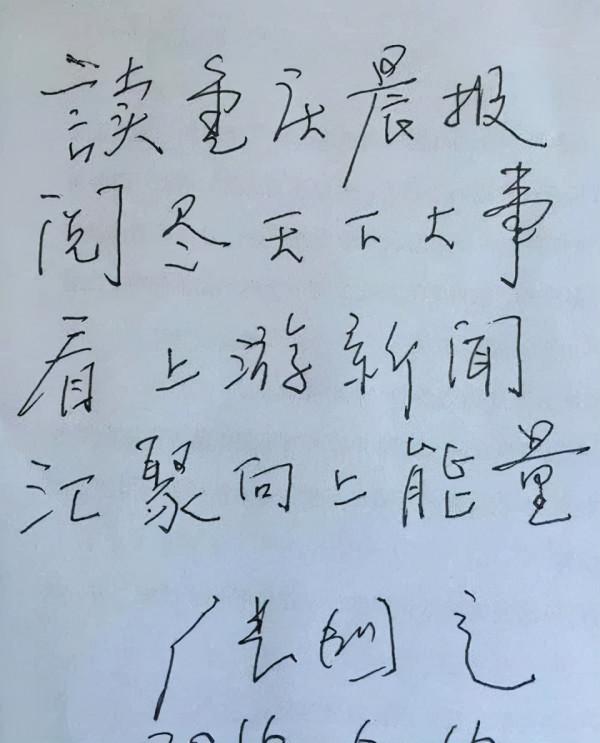 讀重庆晨报
阅尽天下大事
看上游新闻
汇聚向上能量
广
2016.6.16